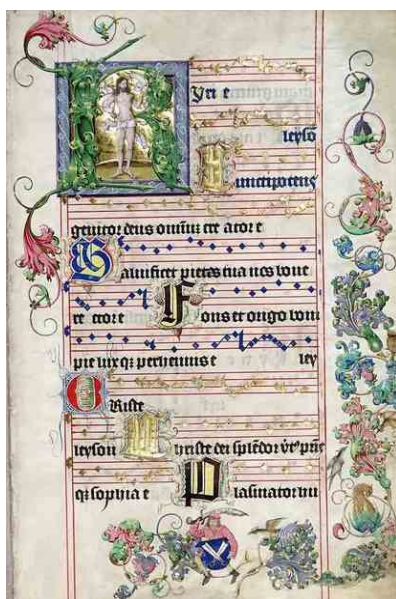 Kyri e
leysō
Cunctipotens
genitor deus omniū cre ator e
Saluificet pietas tua nos bone
re ctor e Fons et origo boni
pie lux qȝ perhennis e ley
CRiste
leyson Christe dei splēdor
qȝ sophia e Plasmator hu